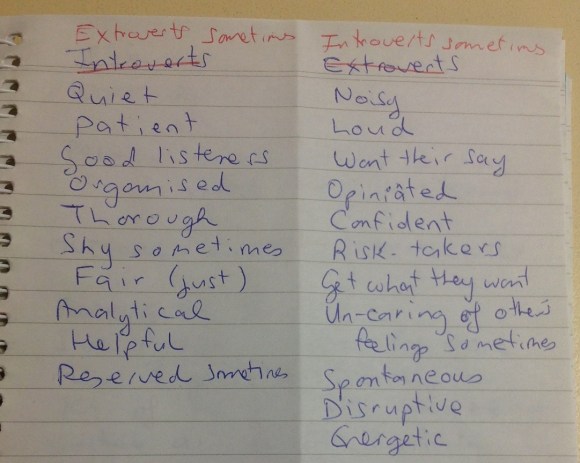 Extroverts sometimes
Introverts
Quiet
Patient
Good listeners
Organised
Thorough
Shy sometimes
Fair (just)
Analytical
Helpful
Reserved sometimes
Introverts sometimes
Extroverts
Noisy
Loud
Want their say
Opiniated
Confident
Risk-takers
Get what they want
Un-caring of others
feelings sometimes
Spontaneous
Disruptive
Energetic